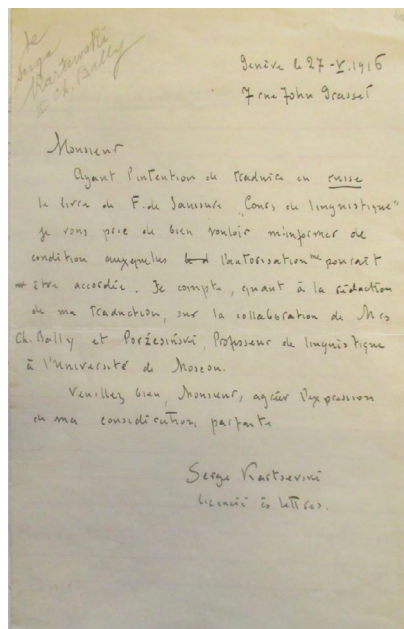 de
Serge
Karzewski
à Ch. Bally
Genève le 27-V.1916
7 rue John Grasset
Monsieur
Ayant l'intention de traduire en russe
le livre de F. de Saussure „Cours de linguistique"
je vous prie de bien vouloir m'informer de
condition auxquelles l'autorisation me pourait
être accordée. Je compte, quant à la rédaction
de ma traduction, sur la collaboration de Mrs
Ch. Bally et Porżesiński, Professeur de linguistique
à l'Université de Moscou.
Veuillez bien, Monsieur, agréer l'expression
de ma considération parfaite
Serge Kartsevski
licencié ès lettres.